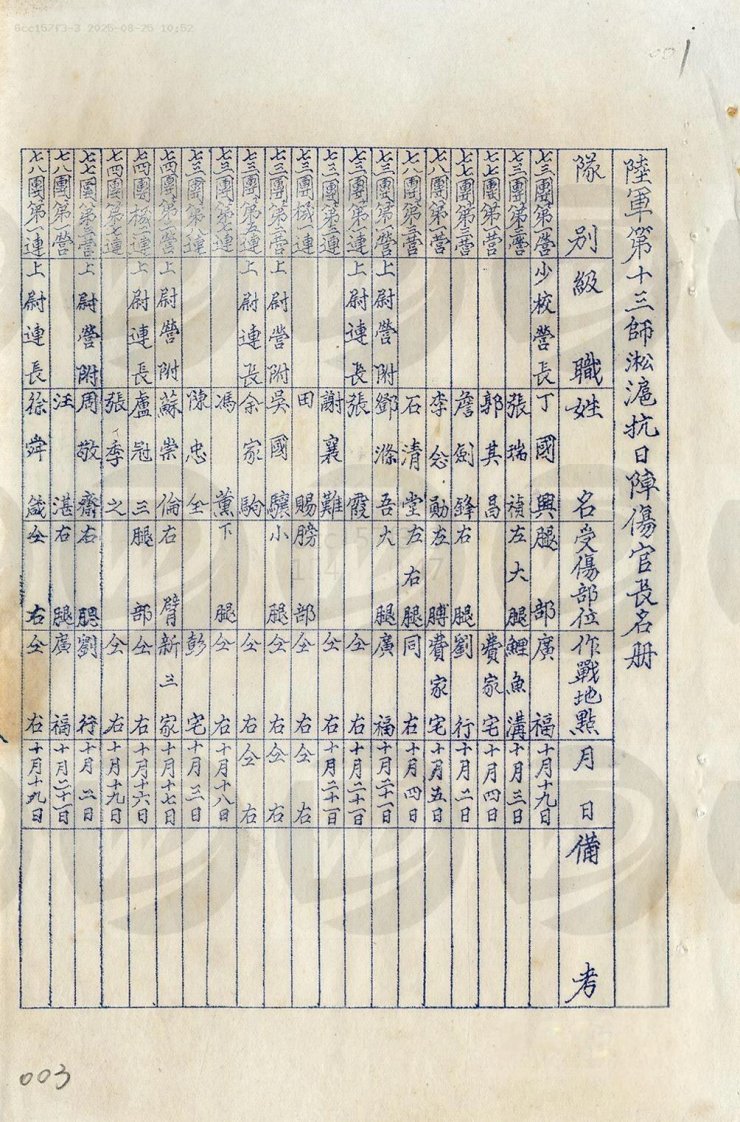 6cc157f3-3 2025-08-25 10:52
001
陸軍第十三師淞滬抗日陣傷官長名册
隊別 級職 姓名 受傷部位 作戰地點 月日 備考
七三團第一營 少校營長 丁國興 腿部 廣福 十月十九日
七三團第三營 張瑞禎 左大腿 鯉魚溝 十月三日
七七團第一營 郭其昌 費家宅 十月四日
七七團第三營 詹劍鋒 右腿 劉行 十月二日
七八團第一營 李念勛 左膊 費家宅 十月五日
七八團第三營 石清堂 左右腿 同右 十月四日
七三團第一營 上尉營附 鄧滌吾 大腿 廣福 十月二十一日
七三團第一連 上尉連長 張霞 仝右 十月二十一日
七三團第三連 謝襄難 仝右 十月二十一日
七三團機一連 田賜 膀部 仝右 仝右
七三團第二營 上尉營附 吳國驥 小腿 仝右 仝右
七三團第五連 上尉連長 余家駒 仝右 仝右
七三團第七連 馮薰 下腿 仝右 十月十八日
七三團第八連 陳忠全 彭宅 十月三日
七四團第一營 上尉營附 蘇崇倫 右臂 新三家 十月十七日
七四團機二連 上尉連長 盧冠三 腿部 仝右 十月十六日
七四團第七連 張季之 仝右 十月十九日
七七團第三營 上尉營附 周敬齋 右腮 劉行 十月二日
七八團第一營 汪湛 右腿 廣福 十月二十一日
七八團第一連 上尉連長 徐舜箴 仝右 仝右 十月十九日
003